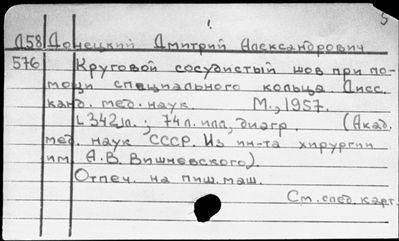 5
Д58 Донецкий Дмитрий Александрович
576 Круговой сосудистый шов при по-
мощи специального кольца. Дисс.
канд. мед. наук. М., 1957.
L 342 л.; 74 л. илл, диагр. (Акад.
мед. наук СССР. Из ин-та хирургии
им. А.В. Вишневского).
Отпеч. на пиш. маш.
См. след. карт.